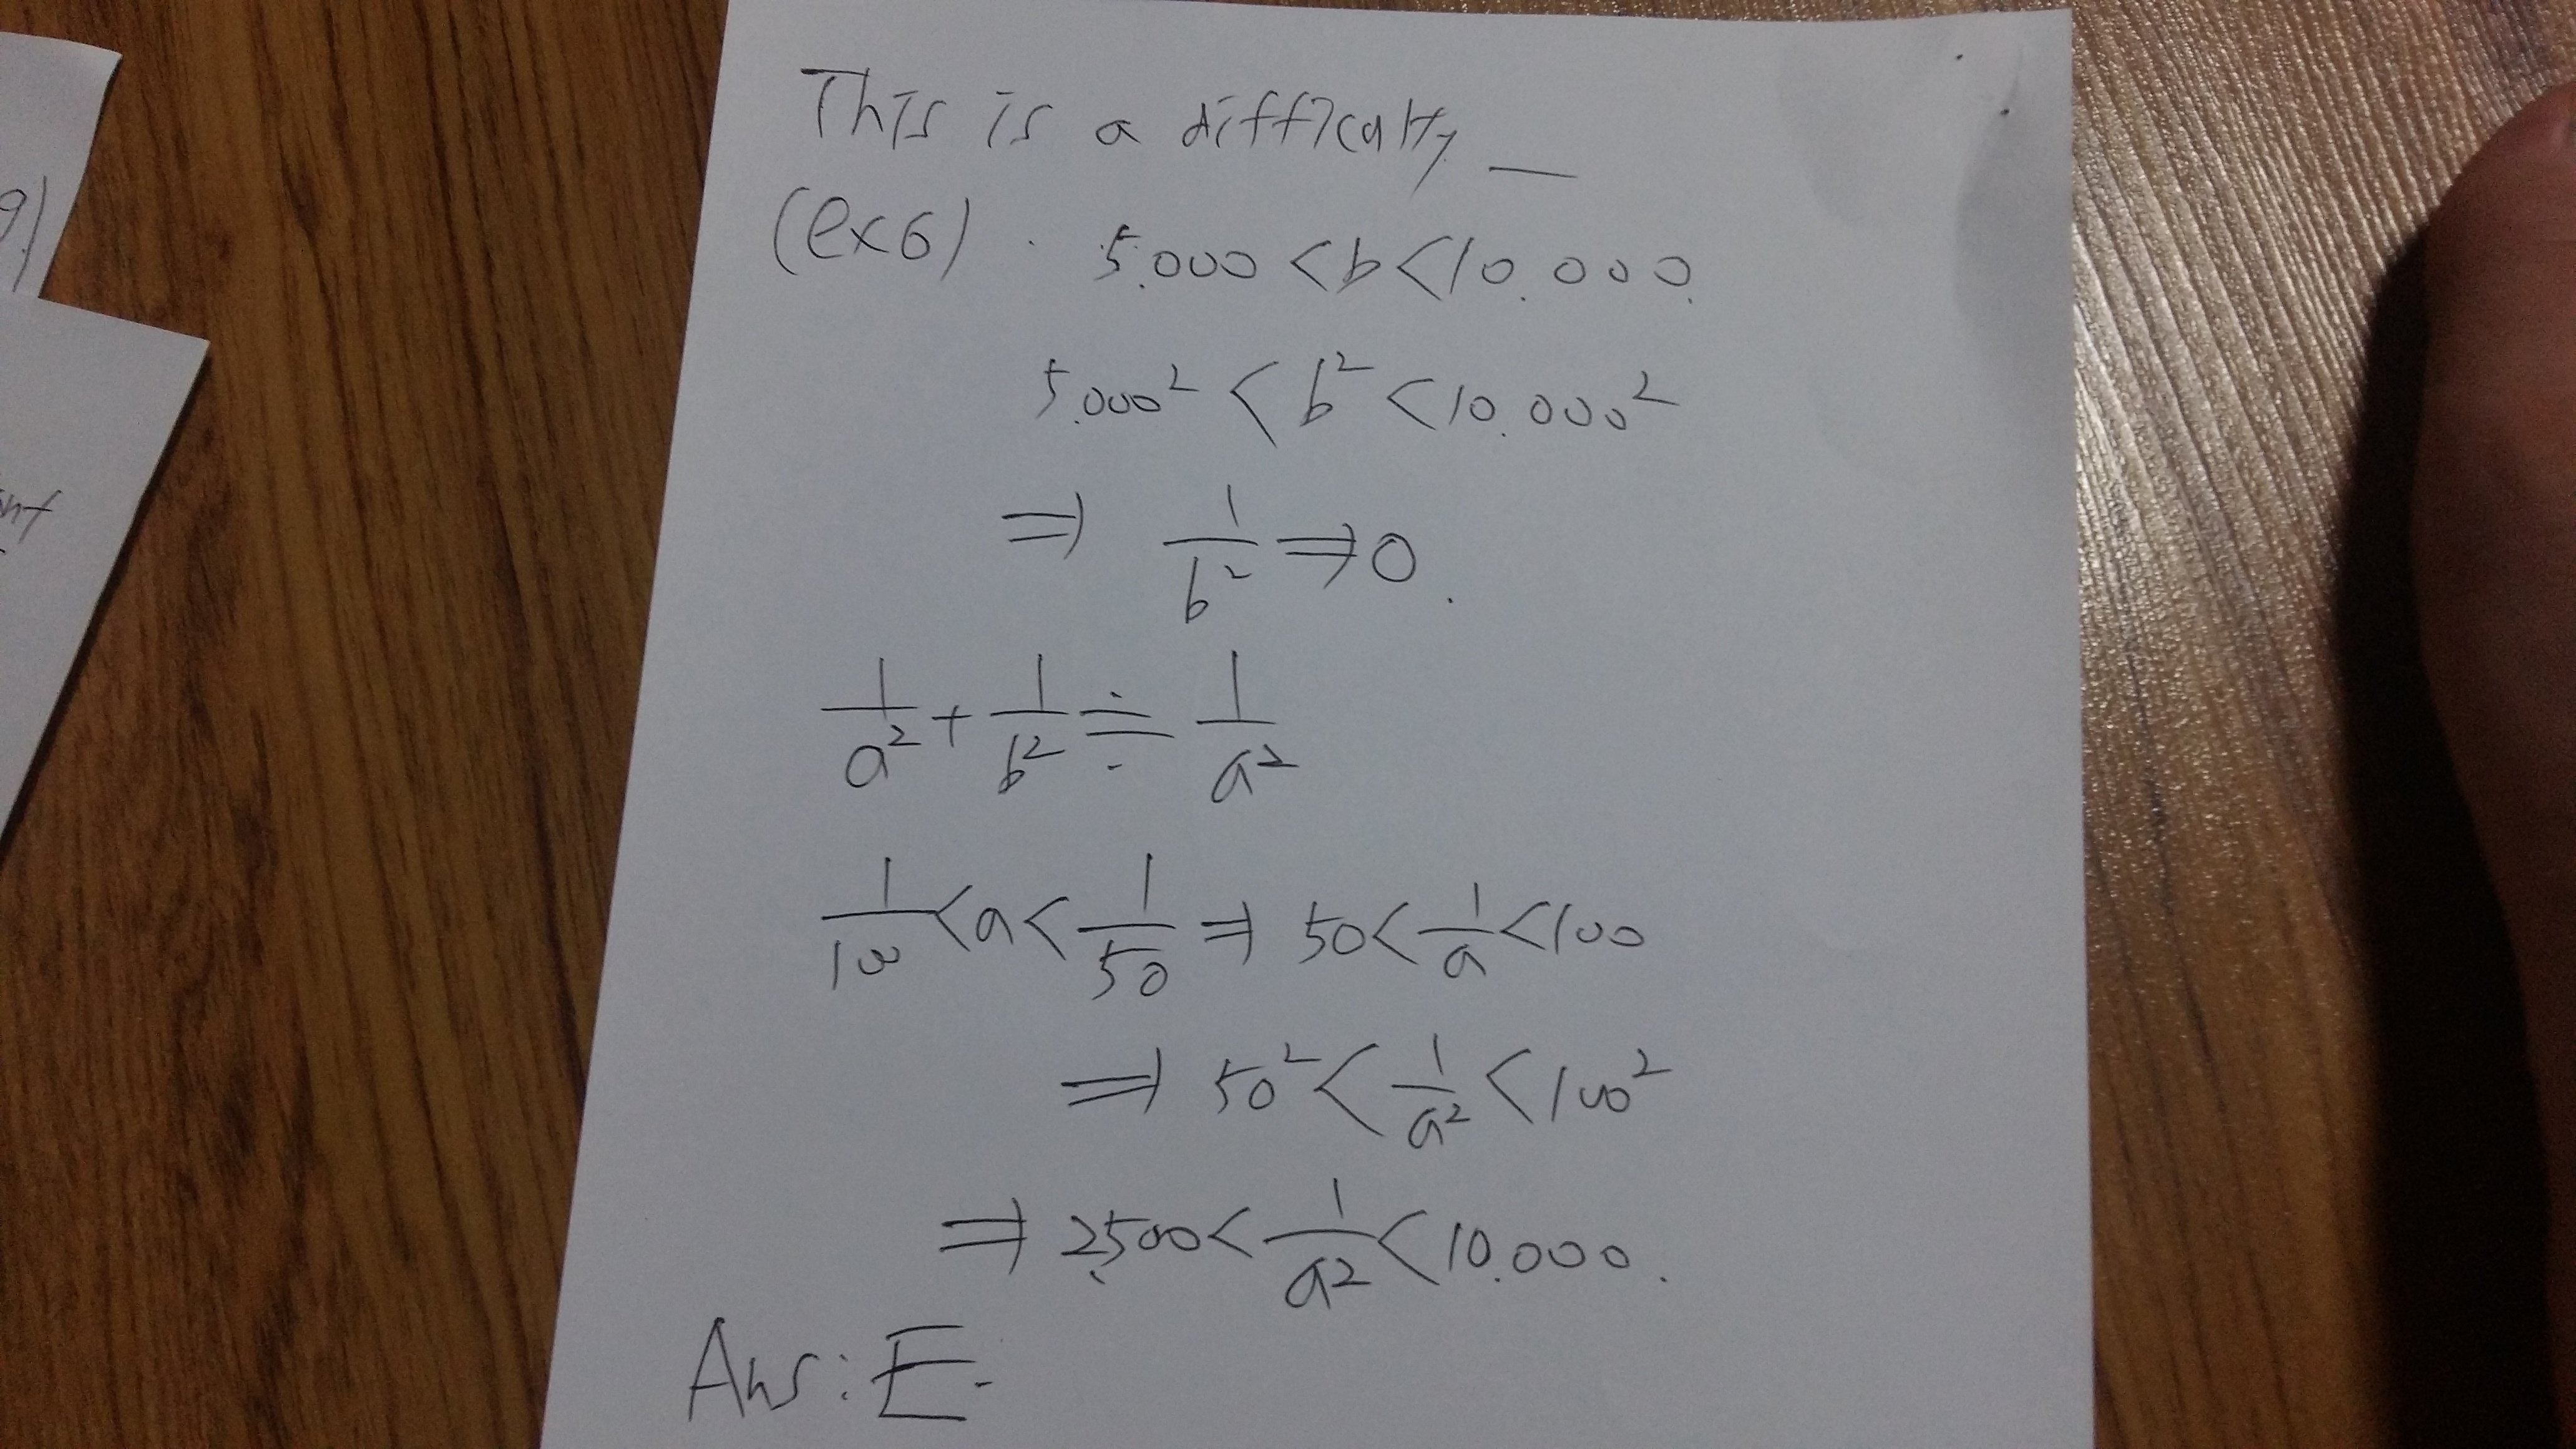 This is a difficalty _
(ex6) . 5.000 < b < 10.000.
5.000² < b² < 10.000²
⇒ 1/b² ⇒ 0.
1/a² + 1/b² ≑ 1/a²
1/100 < a < 1/50 ⇒ 50 < 1/a < 100
⇒ 50² < 1/a² < 100²
⇒ 2,500 < 1/a² < 10.000.
Ans: E.
9)